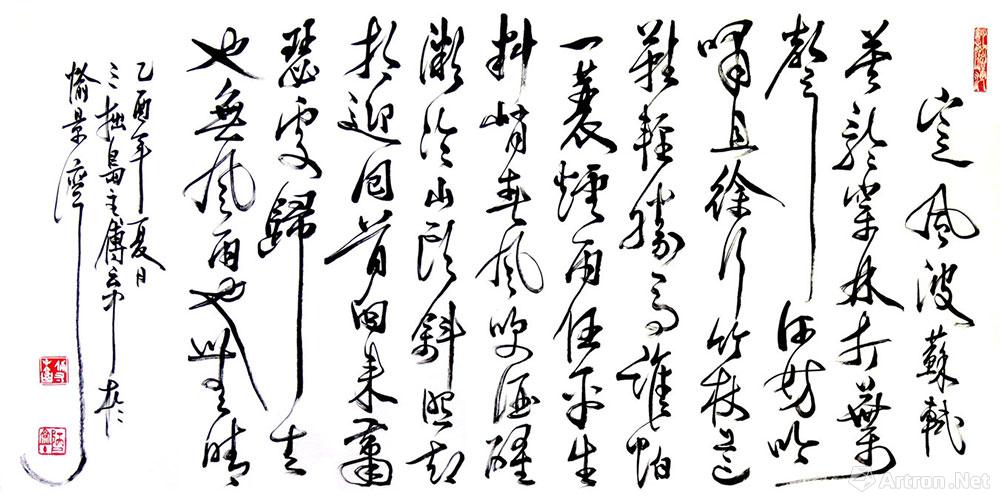 定風波 蘇軾
莫聽穿林打葉
聲何妨吟
嘯且徐行竹杖芒
鞋輕勝馬誰怕
一蓑煙雨任平生
料峭春風吹酒醒
微冷山頭斜照却
相迎回首向来蕭
瑟處歸去
也無風雨也無晴
乙酉年夏日
三拙島主傅
愉景灣
Artron.Net